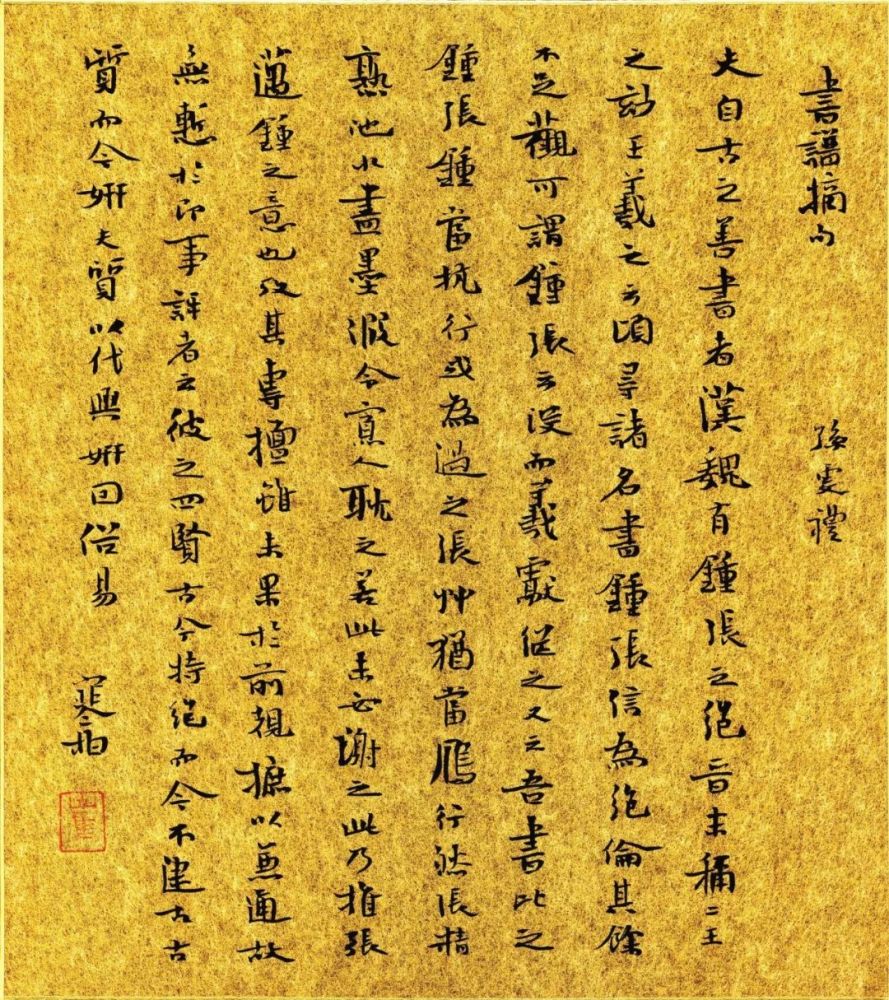 書譜摘句 孫虔禮
夫自古之善書者漢魏有鍾張之絕晉末稱二王
之妙王羲之云頃尋諸名書鍾張信為絕倫其餘
不足觀可謂鍾張云沒而羲獻繼之又云吾書比之
鍾張鍾當抗行或為過之張草猶當雁行然張精
熟池水盡墨假令寡人耽之若此未必謝之此乃推張
邁鍾之意也考其專擅雖未果於前規摭以兼通故
無慙於即事評者云彼之四賢古今特絕而今不逮古古
質而今妍夫質以代興妍因俗易